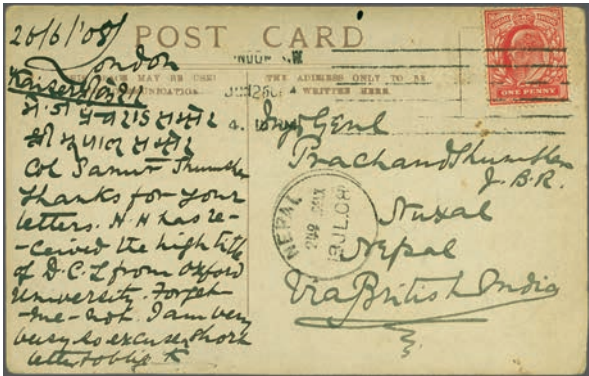 POST CARD
THIS SPACE MAY BE USED
COMMUNICATION
THE ADDRESS ONLY TO BE
WRITTEN HERE
ONE PENNY
26/6/'08
London
Col Samur Shumsher
Thanks for your
letters. H. H has re-
-ceived the high title
of D.C.L from Oxford
University. Forget-
-me-not. I am very
busy so excuse short
letter & oblige
Genl
Prachand Shumsher
J.B.R.
Naxal
Nepal
Via British India
NEPAL
19 JL.08